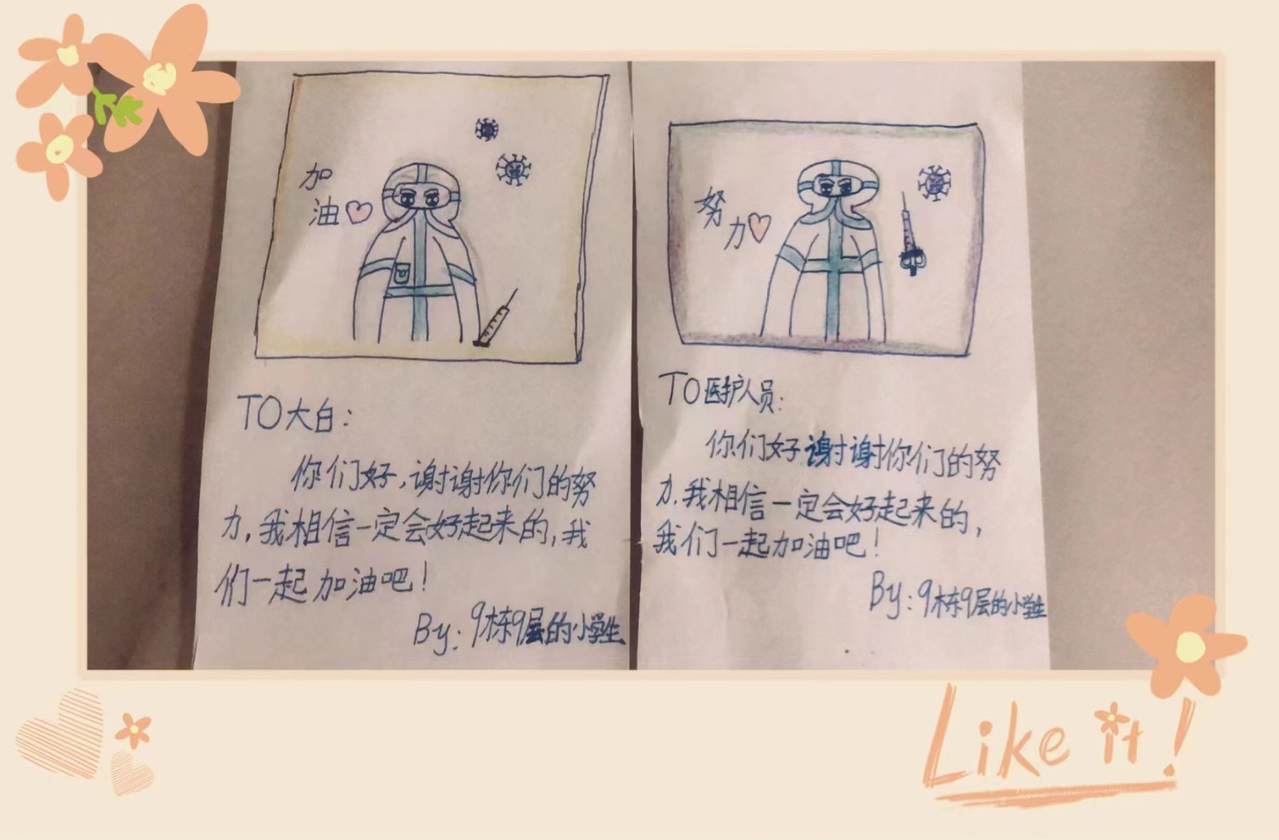 加
油
TO大白：
你们好，谢谢你们的努
力，我相信一定会好起来的，我
们一起加油吧！
By：9栋9层的小学生
努
力
TO医护人员：
你们好谢谢你们的努
力，我相信一定会好起来的，
我们一起加油吧！
By：9栋9层的小学生
Like it!